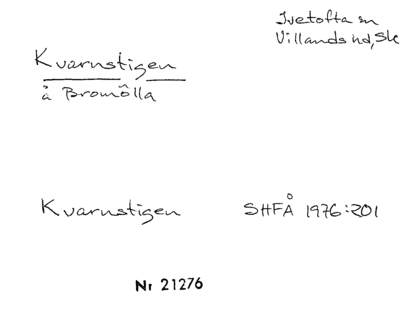 Ivetofta sn
Villands hd, Sk
Kvarnstigen
å Bromölla
Kvarnstigen SHFÅ 1976:201
Nr 21276